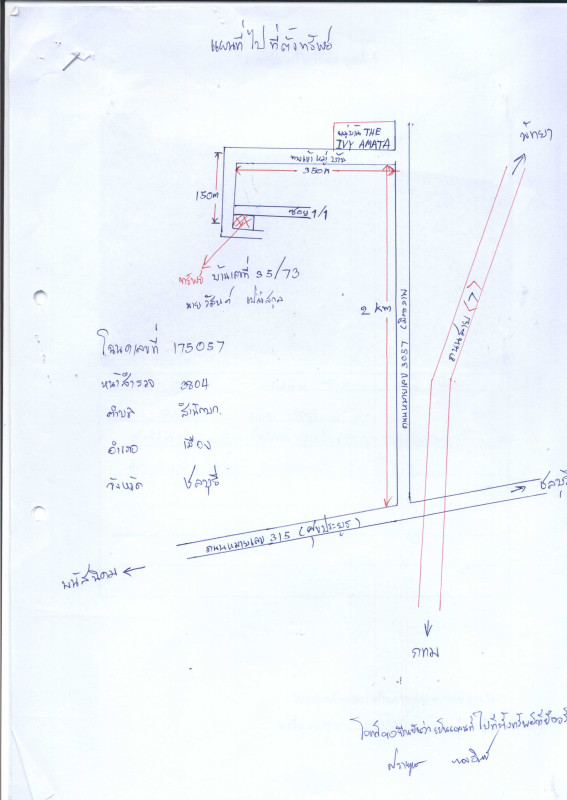 แผนที่ไปที่ตั้งทรัพย์
พัทยา
หมู่บ้าน THE
IVY AMATA
ทางเข้าหมู่บ้าน
350m
150m
ซอย 1/1
ทรัพย์ บ้านเลขที่ 35/73
นาย
2 km
ถนนหมายเลข 3057
ถนนสาย 7
โฉนดเลขที่ 175057
หน้าสำรวจ 3804
ตำบล สำนักบก
อำเภอ เมือง
จังหวัด ชลบุรี
ชลบุรี
ถนนหมายเลข 315 (ศุขประยูร)
พนัสนิคม
กทม
โจทก์ขอยืนยันว่าเป็นแผนที่ไปที่ตั้งทรัพย์ที่ยึดจริง